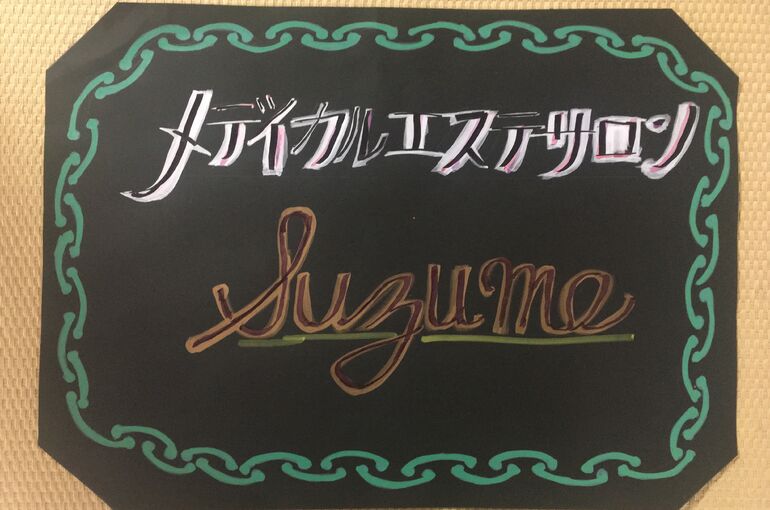 メディカルエステサロン
Suzume